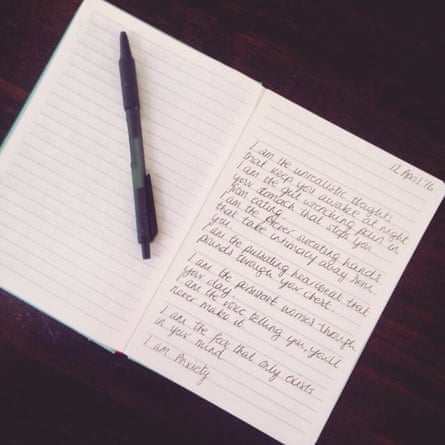 12 April '16
I am the unrealistic thoughts
that keep you awake at night
I am the gut wrenching pain in
your stomach that stops you
from eating
I am the forever sweating hands
that take intimacy away from
you.
I am the pulsating heartbeat that
pounds through your chest
I am the persistent worries through
your day.
I am the voice telling you, you'll
never make it
I am the fear that only exists
in your mind
I am Anxiety